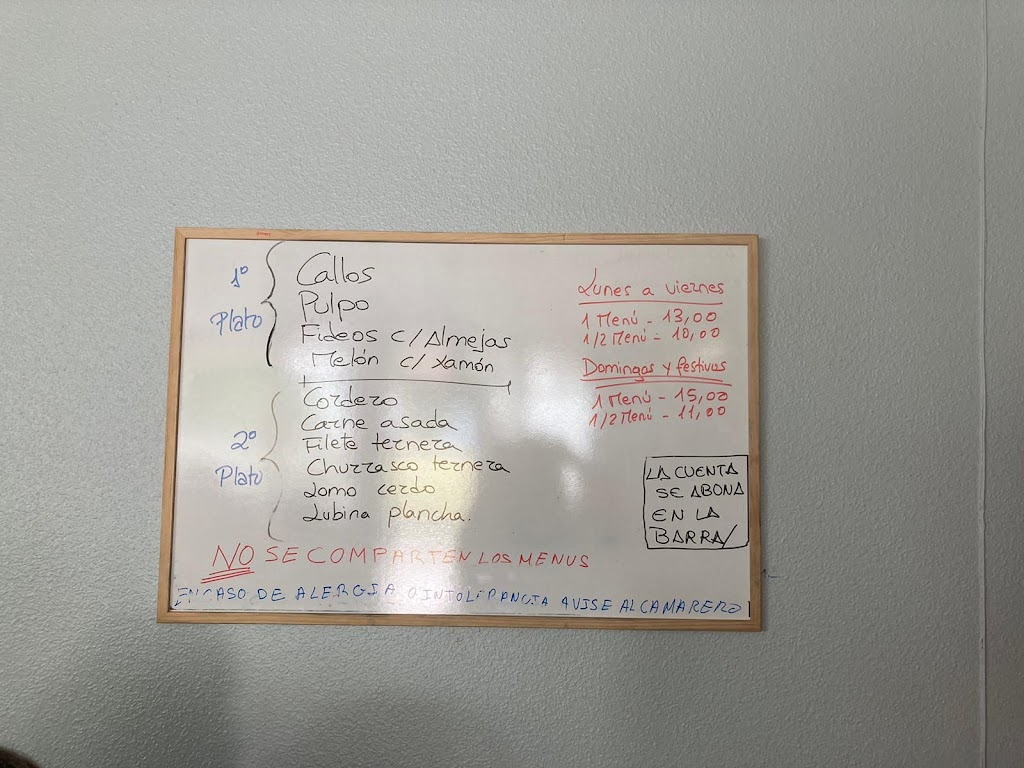 1º
Plato
Callos
Pulpo
Fideos c/ Almejas
Melón c/ xamón
2º
Plato
Cordero
Carne asada
Filete ternera
Churrasco ternera
Lomo cerdo
Lubina plancha.
Lunes a viernes
1 Menú - 13,00
1/2 Menú - 10,00
Domingos y festivos
1 Menú - 15,00
1/2 Menú - 11,00
LA CUENTA
SE ABONA
EN LA
BARRA
NO SE COMPARTEN LOS MENUS
EN CASO DE ALERGIA O INTOLERANCIA AVISE AL CAMARERO